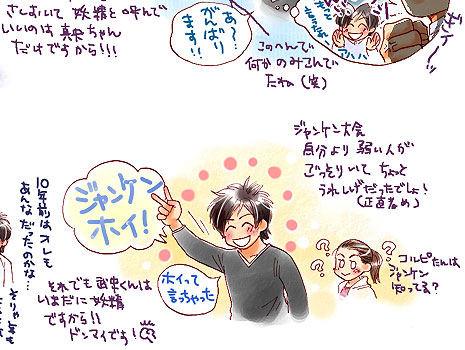 さしおいて 妖精と呼んで
いいのは 真央ちゃん
だけですから!!!
あ〜…
がんばり
ます!!
このへんで
何かのみこんで
たね(笑)
アハハ
ジャンケン大会
自分より 弱い人が
ごっそりいて ちょっと
うれしげだったでしょ!
(正直者め)
ジャンケン
ホイ!
ホイって
言っちゃった
? ? ? ?
コルピたんは
ジャンケン
知ってる?
10年前は、オレも
あんなだったのかな…
それでも 武史くんは
いまだに妖精
ですから!!
ドンマイです!